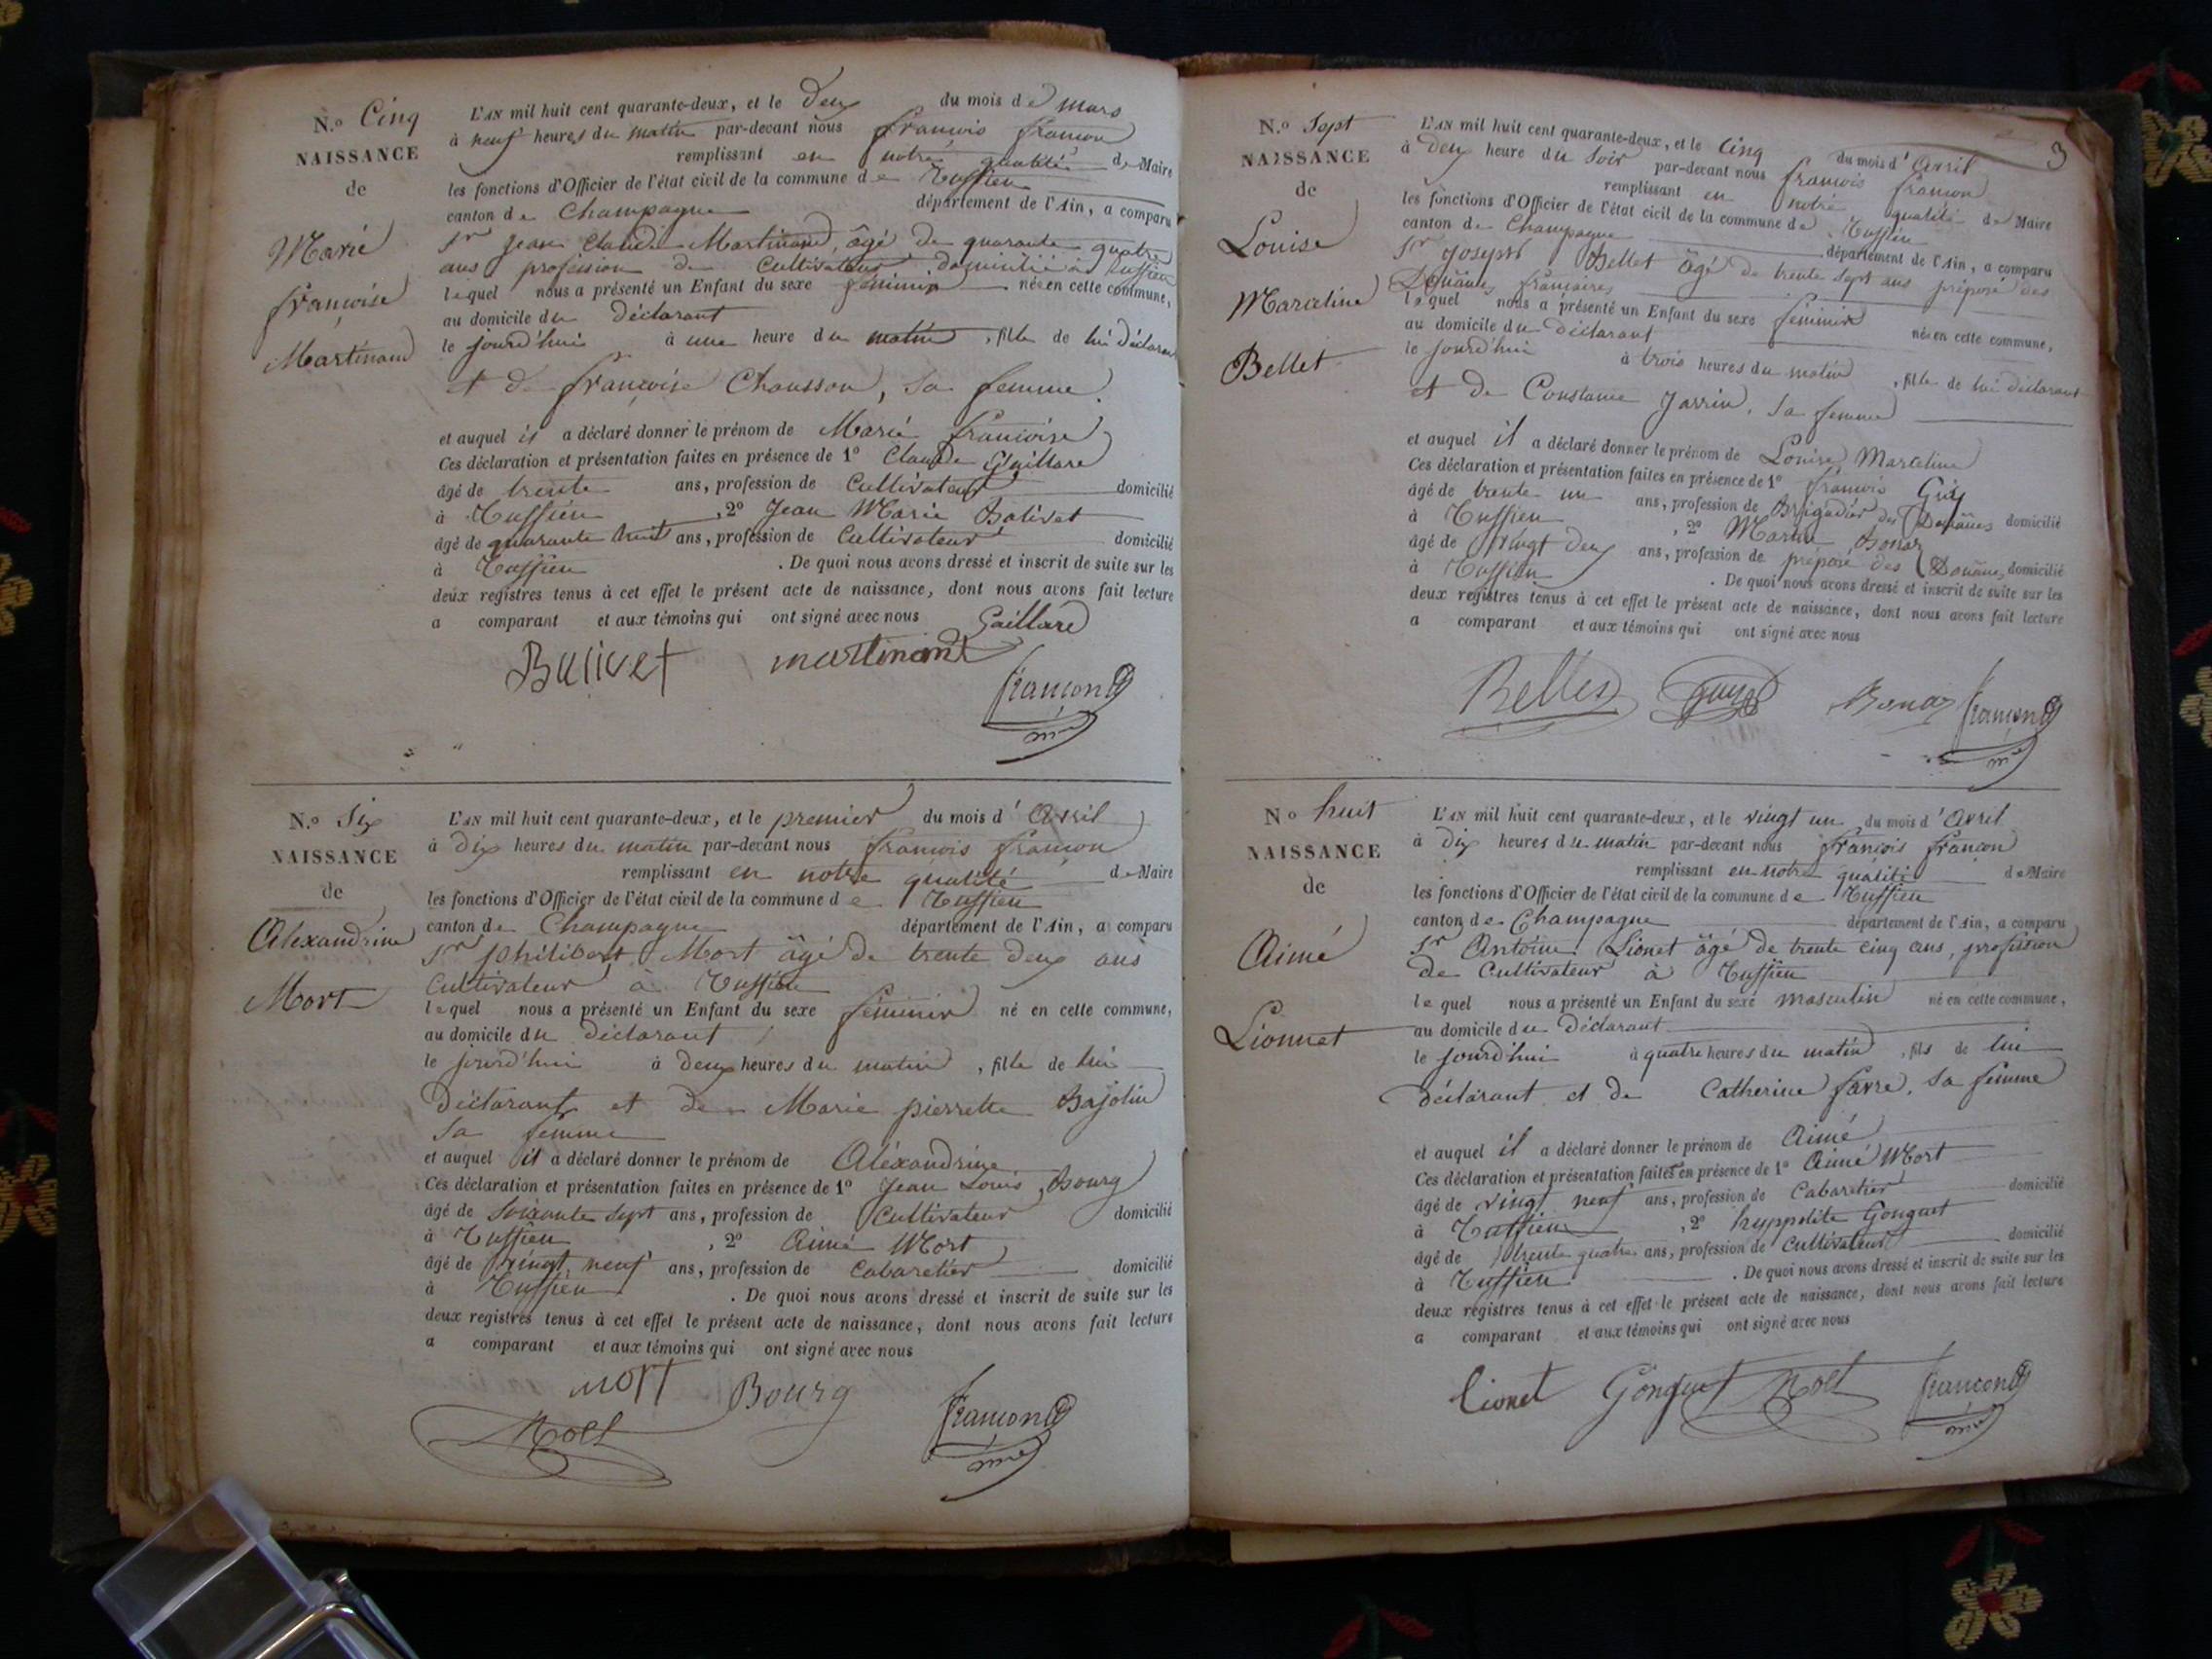 N.o Cinq
NAISSANCE
de
Marie
françoise
Martinand
L'AN mil huit cent quarante-deux, et le deux du mois de mars
à neuf heures du matin par-devant nous françois françon
remplissant en notre qualité de Maire
les fonctions d'Officier de l'état civil de la commune de
canton de Champagne département de l'Ain, a comparu
Sr Jean Claude Martinand, âgé de quarante quatre
ans profession de Cultivateur domicilié à
lequel nous a présenté un Enfant du sexe féminin née en cette commune,
au domicile du déclarant
le jourd'hui à une heure du matin, fille de lui déclarant
et de françoise Chausson, sa femme.
et auquel il a déclaré donner le prénom de Marie françoise
Ces déclaration et présentation faites en présence de 1o Claude Gaillard
âgé de trente ans, profession de Cultivateur domicilié
à , 2o Jean Marie Balivet
âgé de quarante huit ans, profession de Cultivateur domicilié
à . De quoi nous avons dressé et inscrit de suite sur les
deux registres tenus à cet effet le présent acte de naissance, dont nous avons fait lecture
a comparant et aux témoins qui ont signé avec nous Gaillard
Balivet martinand
françon
me
N.o Six
NAISSANCE
de
Alexandrine
Mort
L'AN mil huit cent quarante-deux, et le premier du mois d'Avril
à dix heures du matin par-devant nous françois françon
remplissant en notre qualité de Maire
les fonctions d'Officier de l'état civil de la commune de
canton de Champagne département de l'Ain, a comparu
Sr philibert Mort âgé de trente deux ans
Cultivateur à
lequel nous a présenté un Enfant du sexe féminin né en cette commune,
au domicile du déclarant
le jourd'hui à deux heures du matin, fille de lui
déclarant et de Marie pierrette Bajolin
sa femme
et auquel il a déclaré donner le prénom de Alexandrine
Ces déclaration et présentation faites en présence de 1o Jean Louis Bourg
âgé de soixante sept ans, profession de Cultivateur domicilié
à , 2o Aimé Mort
âgé de vingt neuf ans, profession de Cabaretier domicilié
à . De quoi nous avons dressé et inscrit de suite sur les
deux registres tenus à cet effet le présent acte de naissance, dont nous avons fait lecture
a comparant et aux témoins qui ont signé avec nous
mort Bourg
Mort françon
me
3
N.o Sept
NAISSANCE
de
Louise
Marceline
Bellet
L'AN mil huit cent quarante-deux, et le Cinq du mois d'Avril
à deux heure du Soir par-devant nous françois françon
remplissant en notre qualité de Maire
les fonctions d'Officier de l'état civil de la commune de
canton de Champagne département de l'Ain, a comparu
Sr joseph Bellet âgé de trente Sept ans préposé des
Douanes françaises
lequel nous a présenté un Enfant du sexe féminin née en cette commune,
au domicile du déclarant
le jourd'hui à trois heures du matin, fille de lui déclarant
et de Constance Jarrin, sa femme
et auquel il a déclaré donner le prénom de Louise Marceline
Ces déclaration et présentation faites en présence de 1o françois Guy
âgé de trente un ans, profession de Brigadier des Douanes domicilié
à , 2o Bonaz
âgé de vingt deux ans, profession de préposé des Douanes, domicilié
à . De quoi nous avons dressé et inscrit de suite sur les
deux registres tenus à cet effet le présent acte de naissance, dont nous avons fait lecture
a comparant et aux témoins qui ont signé avec nous
Bellet Guy Bonaz françon
me
No huit
NAISSANCE
de
Aimé
Lionnet
L'AN mil huit cent quarante-deux, et le vingt un du mois d'Avril
à dix heures du matin par-devant nous françois françon
remplissant en notre qualité de Maire
les fonctions d'Officier de l'état civil de la commune de
canton de Champagne département de l'Ain, a comparu
Sr Antoine Lionet âgé de trente cinq ans, profession
de Cultivateur à
lequel nous a présenté un Enfant du sexe masculin né en cette commune,
au domicile du Déclarant
le jourd'hui à quatre heures du matin, fils de lui
déclarant et de Catherine favre, sa femme
et auquel il a déclaré donner le prénom de Aimé
Ces déclaration et présentation faites en présence de 1o Aimé Mort
âgé de vingt neuf ans, profession de Cabaretier domicilié
à , 2o hyppolite Gonguet
âgé de trente quatre ans, profession de Cultivateur domicilié
à . De quoi nous avons dressé et inscrit de suite sur les
deux registres tenus à cet effet le présent acte de naissance, dont nous avons fait lecture
a comparant et aux témoins qui ont signé avec nous
Lionet Gonguet Mort françon
me